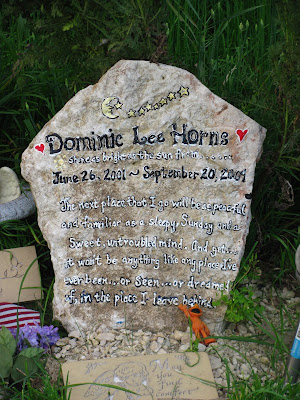 Dominic Lee Horns
shines bright as the sun from
June 26, 2001 ~ September 20, 2009
The next place that I go will be as peaceful
and familiar as a sleepy Sunday and a
sweet, untroubled mind. And yet...
it won't be anything like any place I've
ever been... or seen... or dreamed
of, in the place I leave behind.
you
comfort
In